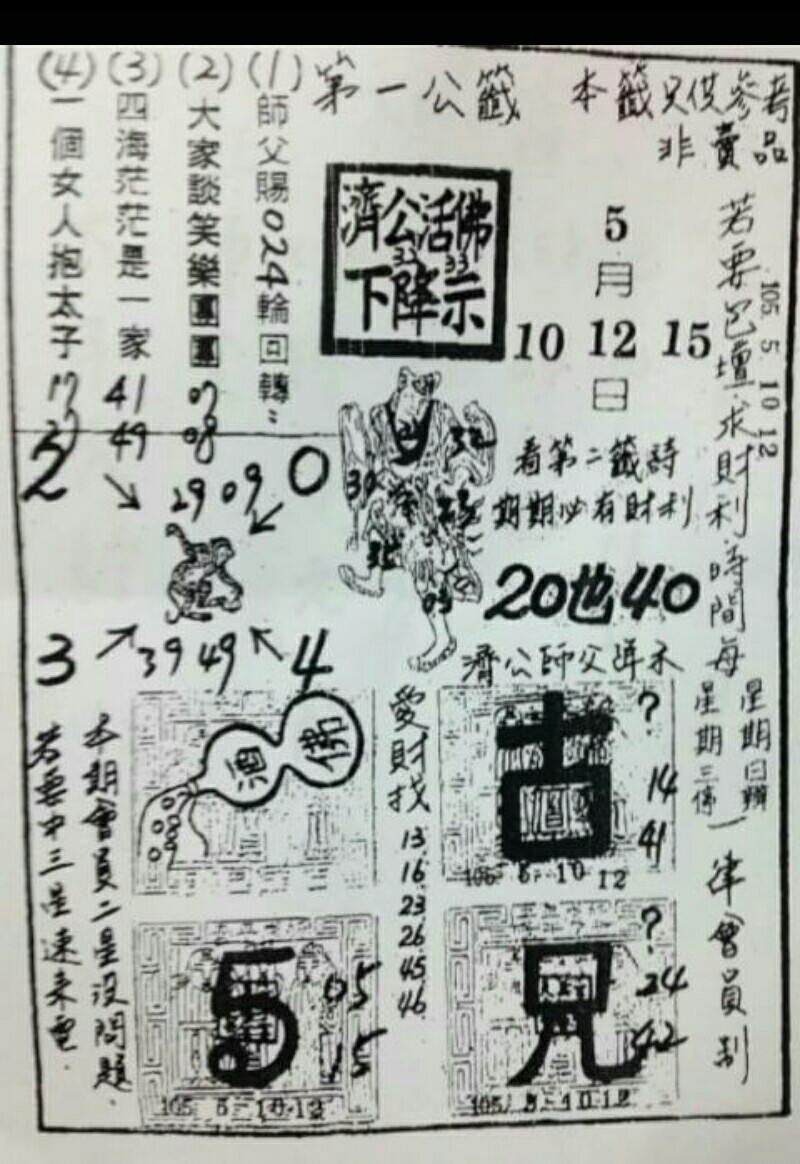 第一公籤
本籤只供參考
非賣品
(1)師父賜024輪回轉:
(2)大家談笑樂團團 07 08
(3)四海茫茫是一家 41 49
(4)一個女人抱太子 17
濟公活佛
33
下降示
5
月
10 12 15
日
若要包壇求財利時間每
星期日辦
星期三停
一律會員制
105 5 10 12
看第二籤詩
期期必有財利
20也40
濟公師父降示
2
0
29 09
3
39 49
4
32
35
03
酒佛
愛財找
13
16
23
26
45
46
古
?
14
41
105 5-10 12
5
05
15
105 5-10.12
兄
?
24
42
105 5-10 12
本期會員二星沒問題.
若要中三星速來電.